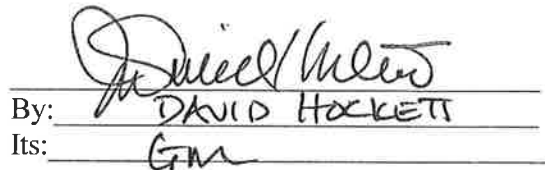 By: DAVID HOCKETT
Its: GM